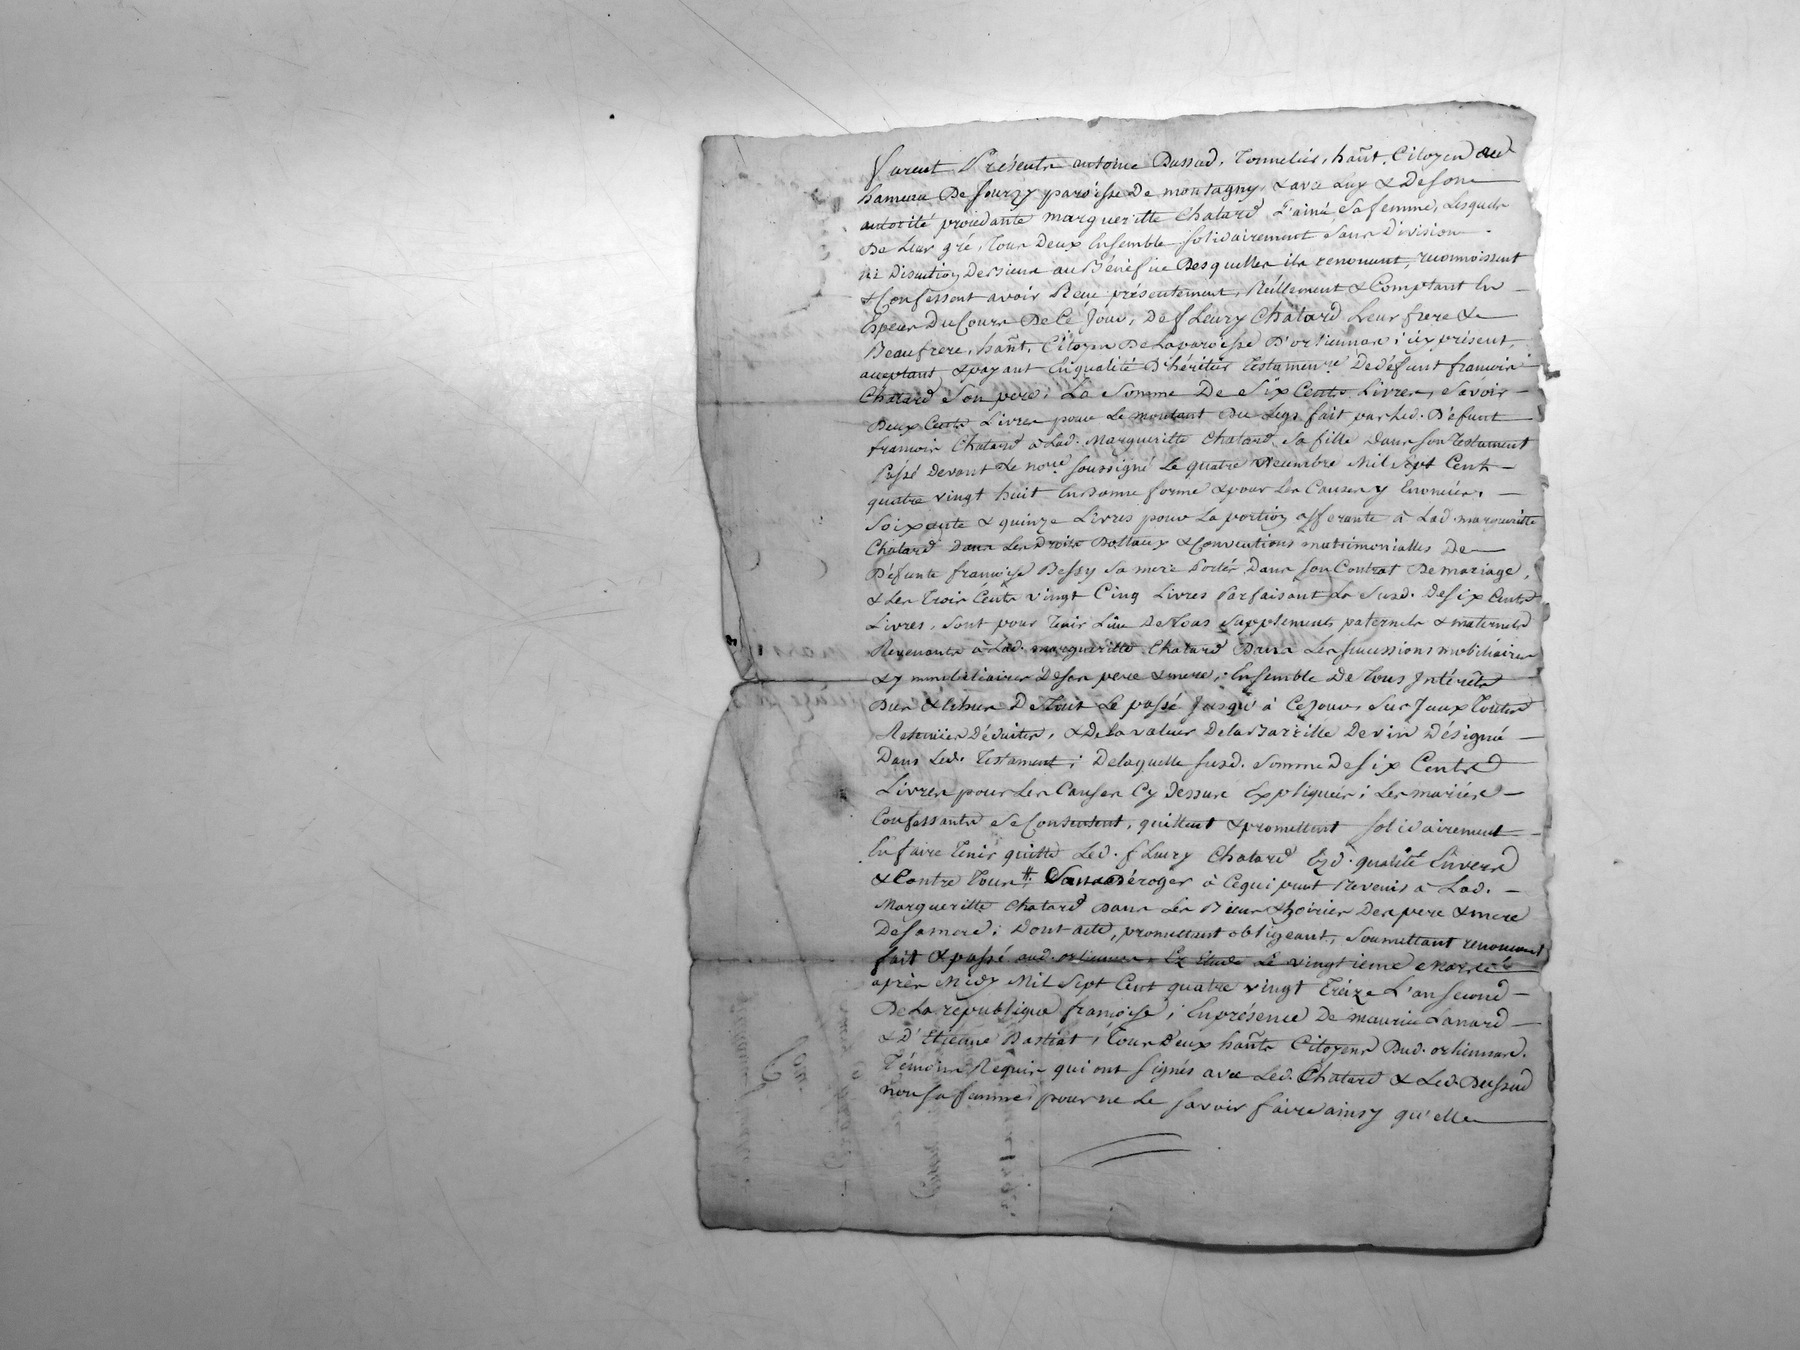 furent Présents antoine Dussud, Tonnelier, hañt, Citoyen du
hameau De fourzy paroisse De montagny, & avec Luy & De son
autorité procedante margueritte Chatard L'ainé, Sa femme, Lesquels
De Leur gré, Tous Deux Ensemble solidairement sans Division
ni Discution Dersieux au Bénéfice Desquelles ils renoncent, reconnoissent
& Confessent avoir Reçu présentement, Réellement & Comptant En
Espèces Du Cours De Cé Jour, De fLeury Chatard Leur frere &
Beaufrere, hañt, Citoyen De La paroisse D'orliennas; icy présent,
acceptant & payant En qualité D'héritier Testamen.re De défunt françois
Chatard Son pere; La Somme De Six Cents Livres, Savoir
Deux Cents Livres pour Le montant Du Legs fait par Led. Défunt
françois Chatard à Lad. Margueritte Chatard Sa fille Dans son Testament
Passé Devant Le no.re soussigné Le quatre Décembre Mil Sept Cent
quatre vingt huit En Bonne forme & pour Les Causes y Enoncées.
Soixante & quinze Livres pour La portion afferante à Lad. margueritte
Chatard Dans Les Droits Dottaux & Conventions matrimonialles De
Défunte françoise Bessy Sa mere Portés Dans son Contrat De mariage,
& Les Trois Cents vingt Cinq Livres Parfaisant La Susd. De six Cents
Livres, Sont pour Tenir Lieu De Tous Supplements paternels & maternels
Revenants à Lad. margueritte Chatard Dans Les successions mobiliaires
& ymmobiliaires De ses pere & mere, Ensemble De Tous Intérêts
Dus & Echus De Tout Le passé Jusqu'à Ce Jour, Sur Jceux Toutes
Retenües Déduites, & De La valeur De La Bareille De vin Désigné
Dans Led. Testament; De laquelle susd. Somme De six Cents
Livres pour Les Causes Cy Dessus Expliquées; Les mariés
Confessants Se Contentent, quittent & promettent solidairement
En faire Tenir quitte Led. fLeury Chatard Esd. qualité Envers
& Contre Tous. Sans Déroger à Ce qui peut Revenir à Lad.
Margueritte Chatard Dans Les Biens & hoiries Des pere & mere
De sa mere; Dont acte, promettant obligeant, Soumettant renonçant
fait & passé aud. orliennas, Ez Etude Le vingtieme
après Midy Mil Sept Cent quatre vingt Treize L'an second
De La république françoise; En présence De maurice Lanard
& D'Etienne Bastiat, Tous Deux hañts Citoyens Dud. orliennas.
Témoins Requis qui ont Signés avec Led. Chatard & Led. Dussud
non sa femme, pour ne Le savoir faire ainsy qu'elle